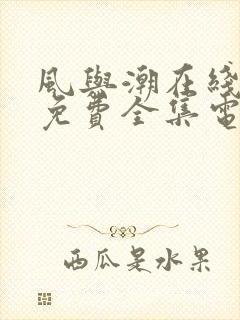 風與潮在綫
免費全集電
西瓜是水果